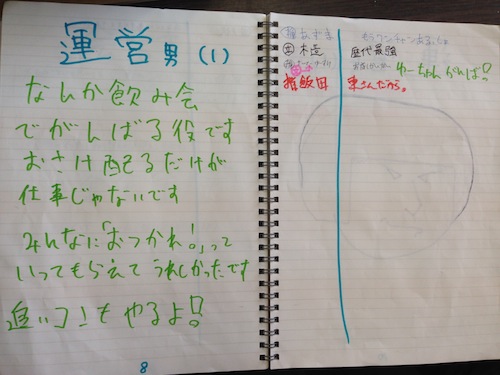 運営男(1)
なんか飲み会
でがんばる役です
おさけ配るだけが
仕事じゃないです
みんなに「おつかれ!」って
いってもらえてうれしかったです
追いコンもやるよ!!
8
木造
歴代最強
ゆーちゃんがんば!!
飯田
東さんだから。